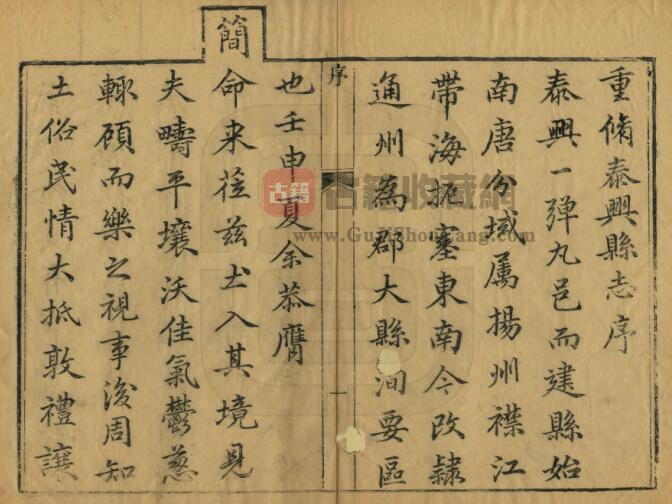 重脩泰興縣志序
泰興一彈丸邑而建縣始
南唐分域属揚州襟江
帶海扼塞東南今改隸
通州為郡大縣洵要區
序
一
也壬申夏余恭膺
簡
命来莅兹土入其境見
夫疇平壤沃佳氣鬱葱
輙顧而樂之視事後周知
土俗民情大抵敦禮讓
古籍
古籍收藏网
www.GuJiShouCang.com